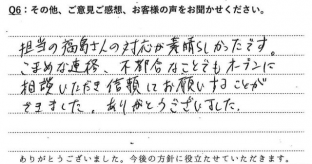 Q6：その他、ご意見ご感想、お客様の声をお聞かせください。
担当の福島さんの対応が素晴しかったです。
こまめな連絡、不都合なことでもオープンに
相談いただき信頼にお願いすることが
できました。ありがとうございました。
ありがとうございました。今後の方針に役立たせていただきます。